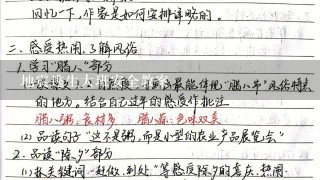 回忆一下,作家是如何安排详略的。
二、感受热闹,了解风俗
1. 学习“腊八”部分
最能体现“腊八节”风俗特点
的地方。结合自己过年的感受作批注
腊八粥:食材多 腊八蒜:色味双美
(2) 品读句子“这不是粥,而是小型的农业产品展览会”
2. 品读“除夕”部分
(1) 抓关键词“赶做、到处”等感受除夕的喜庆、热闹